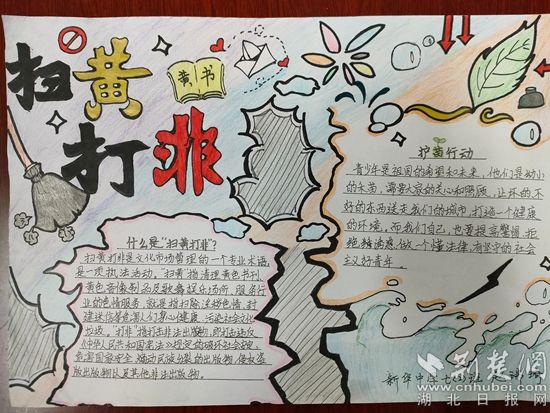 扫黄
打非
黄书
什么是"扫黄打非"?
扫黄打非是文化市场管理的一个专业术语,
是一项执法活动,"扫黄"指清理黄色书刊、
黄色音像制品及歌舞娱乐场所、服务行
业的色情服务,就是扫除淫秽色情、封
建迷信等危害人们身心健康、污染社会文化
垃圾。"打非"指打击非法出版物,即打击违反
《中华人民共和国宪法》规定的破坏社会安定、
危害国家安全、煽动民族分裂的出版物,侵权盗
版出版物以及其他非法出版物。
护苗行动
青少年是祖国的希望和未来,他们是幼小
的禾苗,需要大家的关心和照顾,让坏的、不
好的东西远走我们的城市,打造一个健康
的环境,而我们自己,也要提高警惕,拒
绝糖衣诱惑,做一个懂法律、有坚守的社会
主义好青年。
新华中学七
荆楚网
www.cnhubei.com
湖北日报网